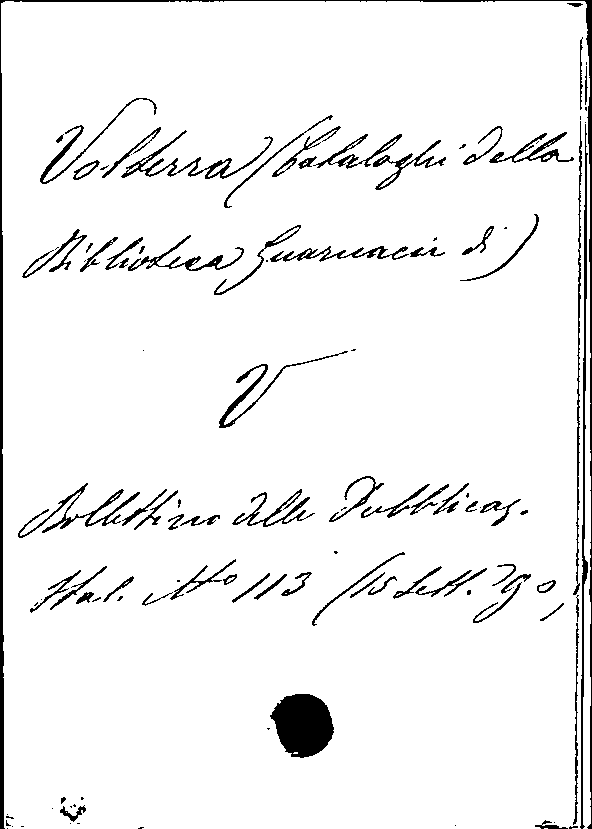 Volterra (Cataloghi della
Biblioteca Guarnacci di)
V
Bollettino delle Pubblicaz.
Ital. No 113 (15 Sett. 90,